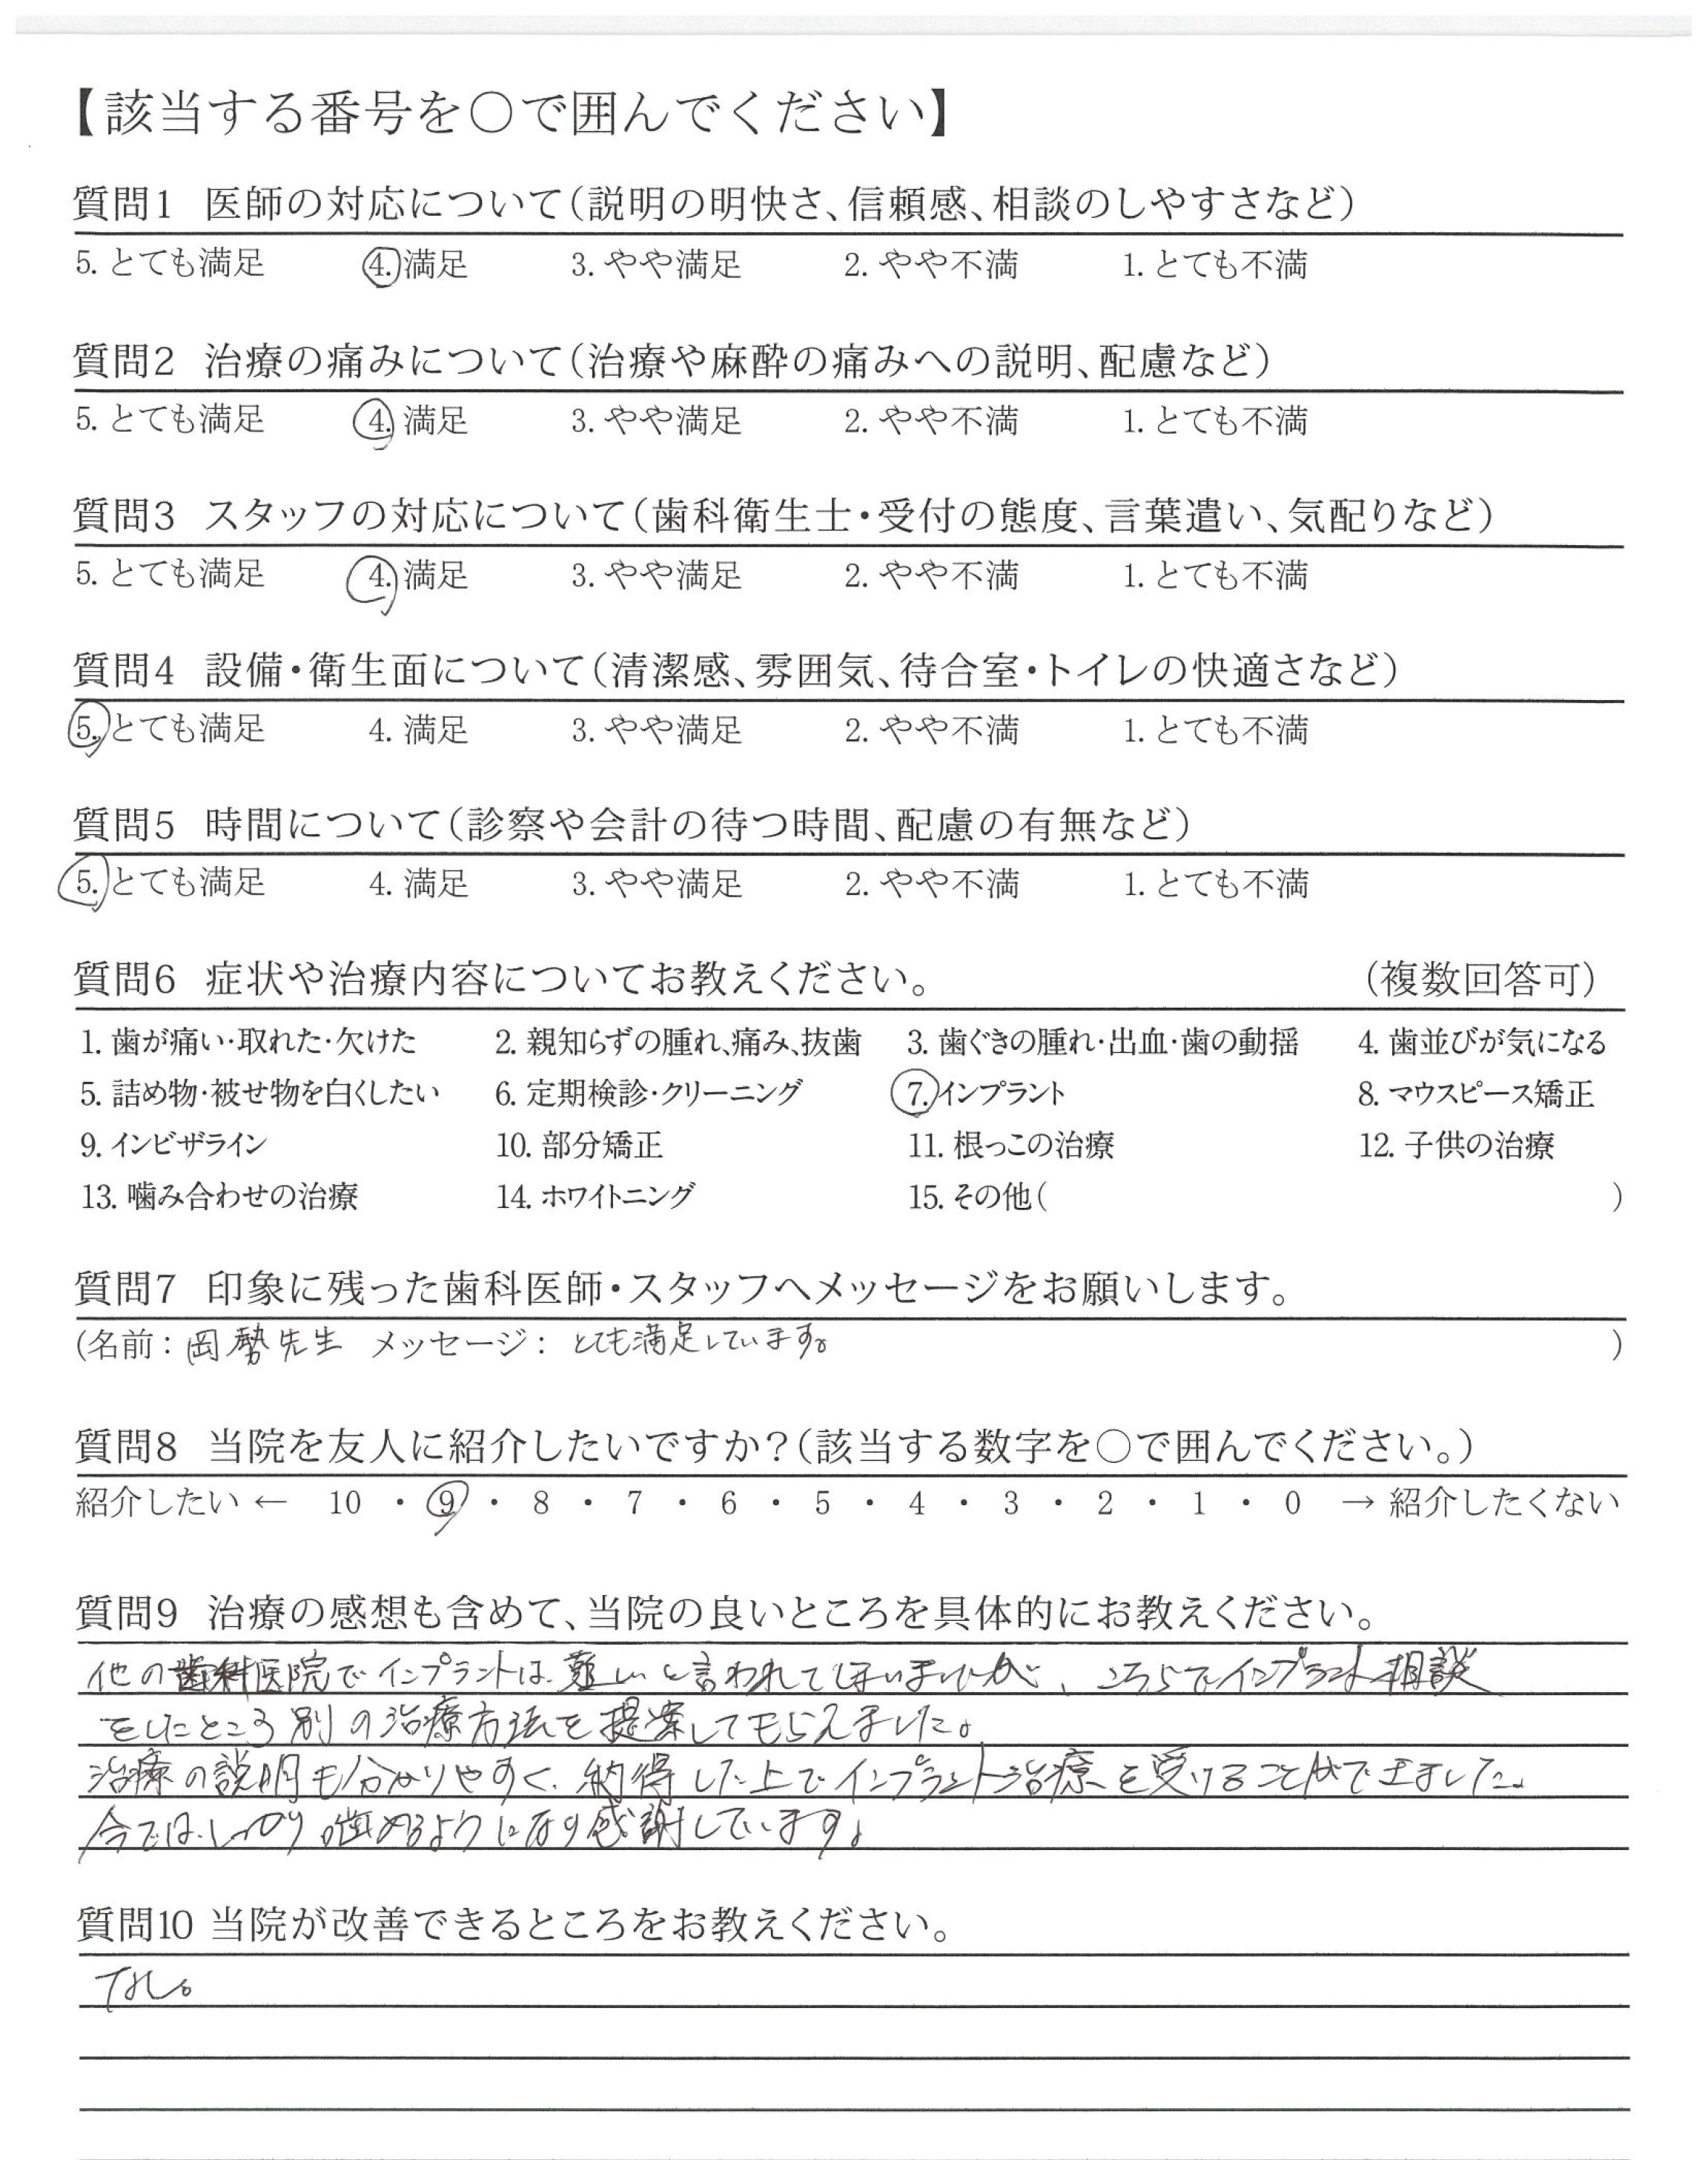 【該当する番号を○で囲んでください】
質問1 医師の対応について(説明の明快さ、信頼感、相談のしやすさなど)
5. とても満足 4. 満足 3. やや満足 2. やや不満 1. とても不満
質問2 治療の痛みについて(治療や麻酔の痛みへの説明、配慮など)
5. とても満足 4. 満足 3. やや満足 2. やや不満 1. とても不満
質問3 スタッフの対応について(歯科衛生士・受付の態度、言葉遣い、気配りなど)
5. とても満足 4. 満足 3. やや満足 2. やや不満 1. とても不満
質問4 設備・衛生面について(清潔感、雰囲気、待合室・トイレの快適さなど)
5. とても満足 4. 満足 3. やや満足 2. やや不満 1. とても不満
質問5 時間について(診察や会計の待つ時間、配慮の有無など)
5. とても満足 4. 満足 3. やや満足 2. やや不満 1. とても不満
質問6 症状や治療内容についてお教えください。 (複数回答可)
1. 歯が痛い・取れた・欠けた 2. 親知らずの腫れ、痛み、抜歯 3. 歯ぐきの腫れ・出血・歯の動揺 4. 歯並びが気になる
5. 詰め物・被せ物を白くしたい 6. 定期検診・クリーニング 7. インプラント 8. マウスピース矯正
9. インビザライン 10. 部分矯正 11. 根っこの治療 12. 子供の治療
13. 噛み合わせの治療 14. ホワイトニング 15. その他( )
質問7 印象に残った歯科医師・スタッフへメッセージをお願いします。
(名前: 岡勢先生 メッセージ: とても満足しています。 )
質問8 当院を友人に紹介したいですか?(該当する数字を○で囲んでください。)
紹介したい ← 10 ・ 9 ・ 8 ・ 7 ・ 6 ・ 5 ・ 4 ・ 3 ・ 2 ・ 1 ・ 0 → 紹介したくない
質問9 治療の感想も含めて、当院の良いところを具体的にお教えください。
他の歯科医院でインプラントは難しいと言われてしまいましたが、こちらでインプラント相談
をしたところ別の治療方法を提案してもらえました。
治療の説明も分かりやすく、納得した上でインプラント治療を受けることができました。
今ではしっかり噛めるようになり感謝しています。
質問10 当院が改善できるところをお教えください。
なし。